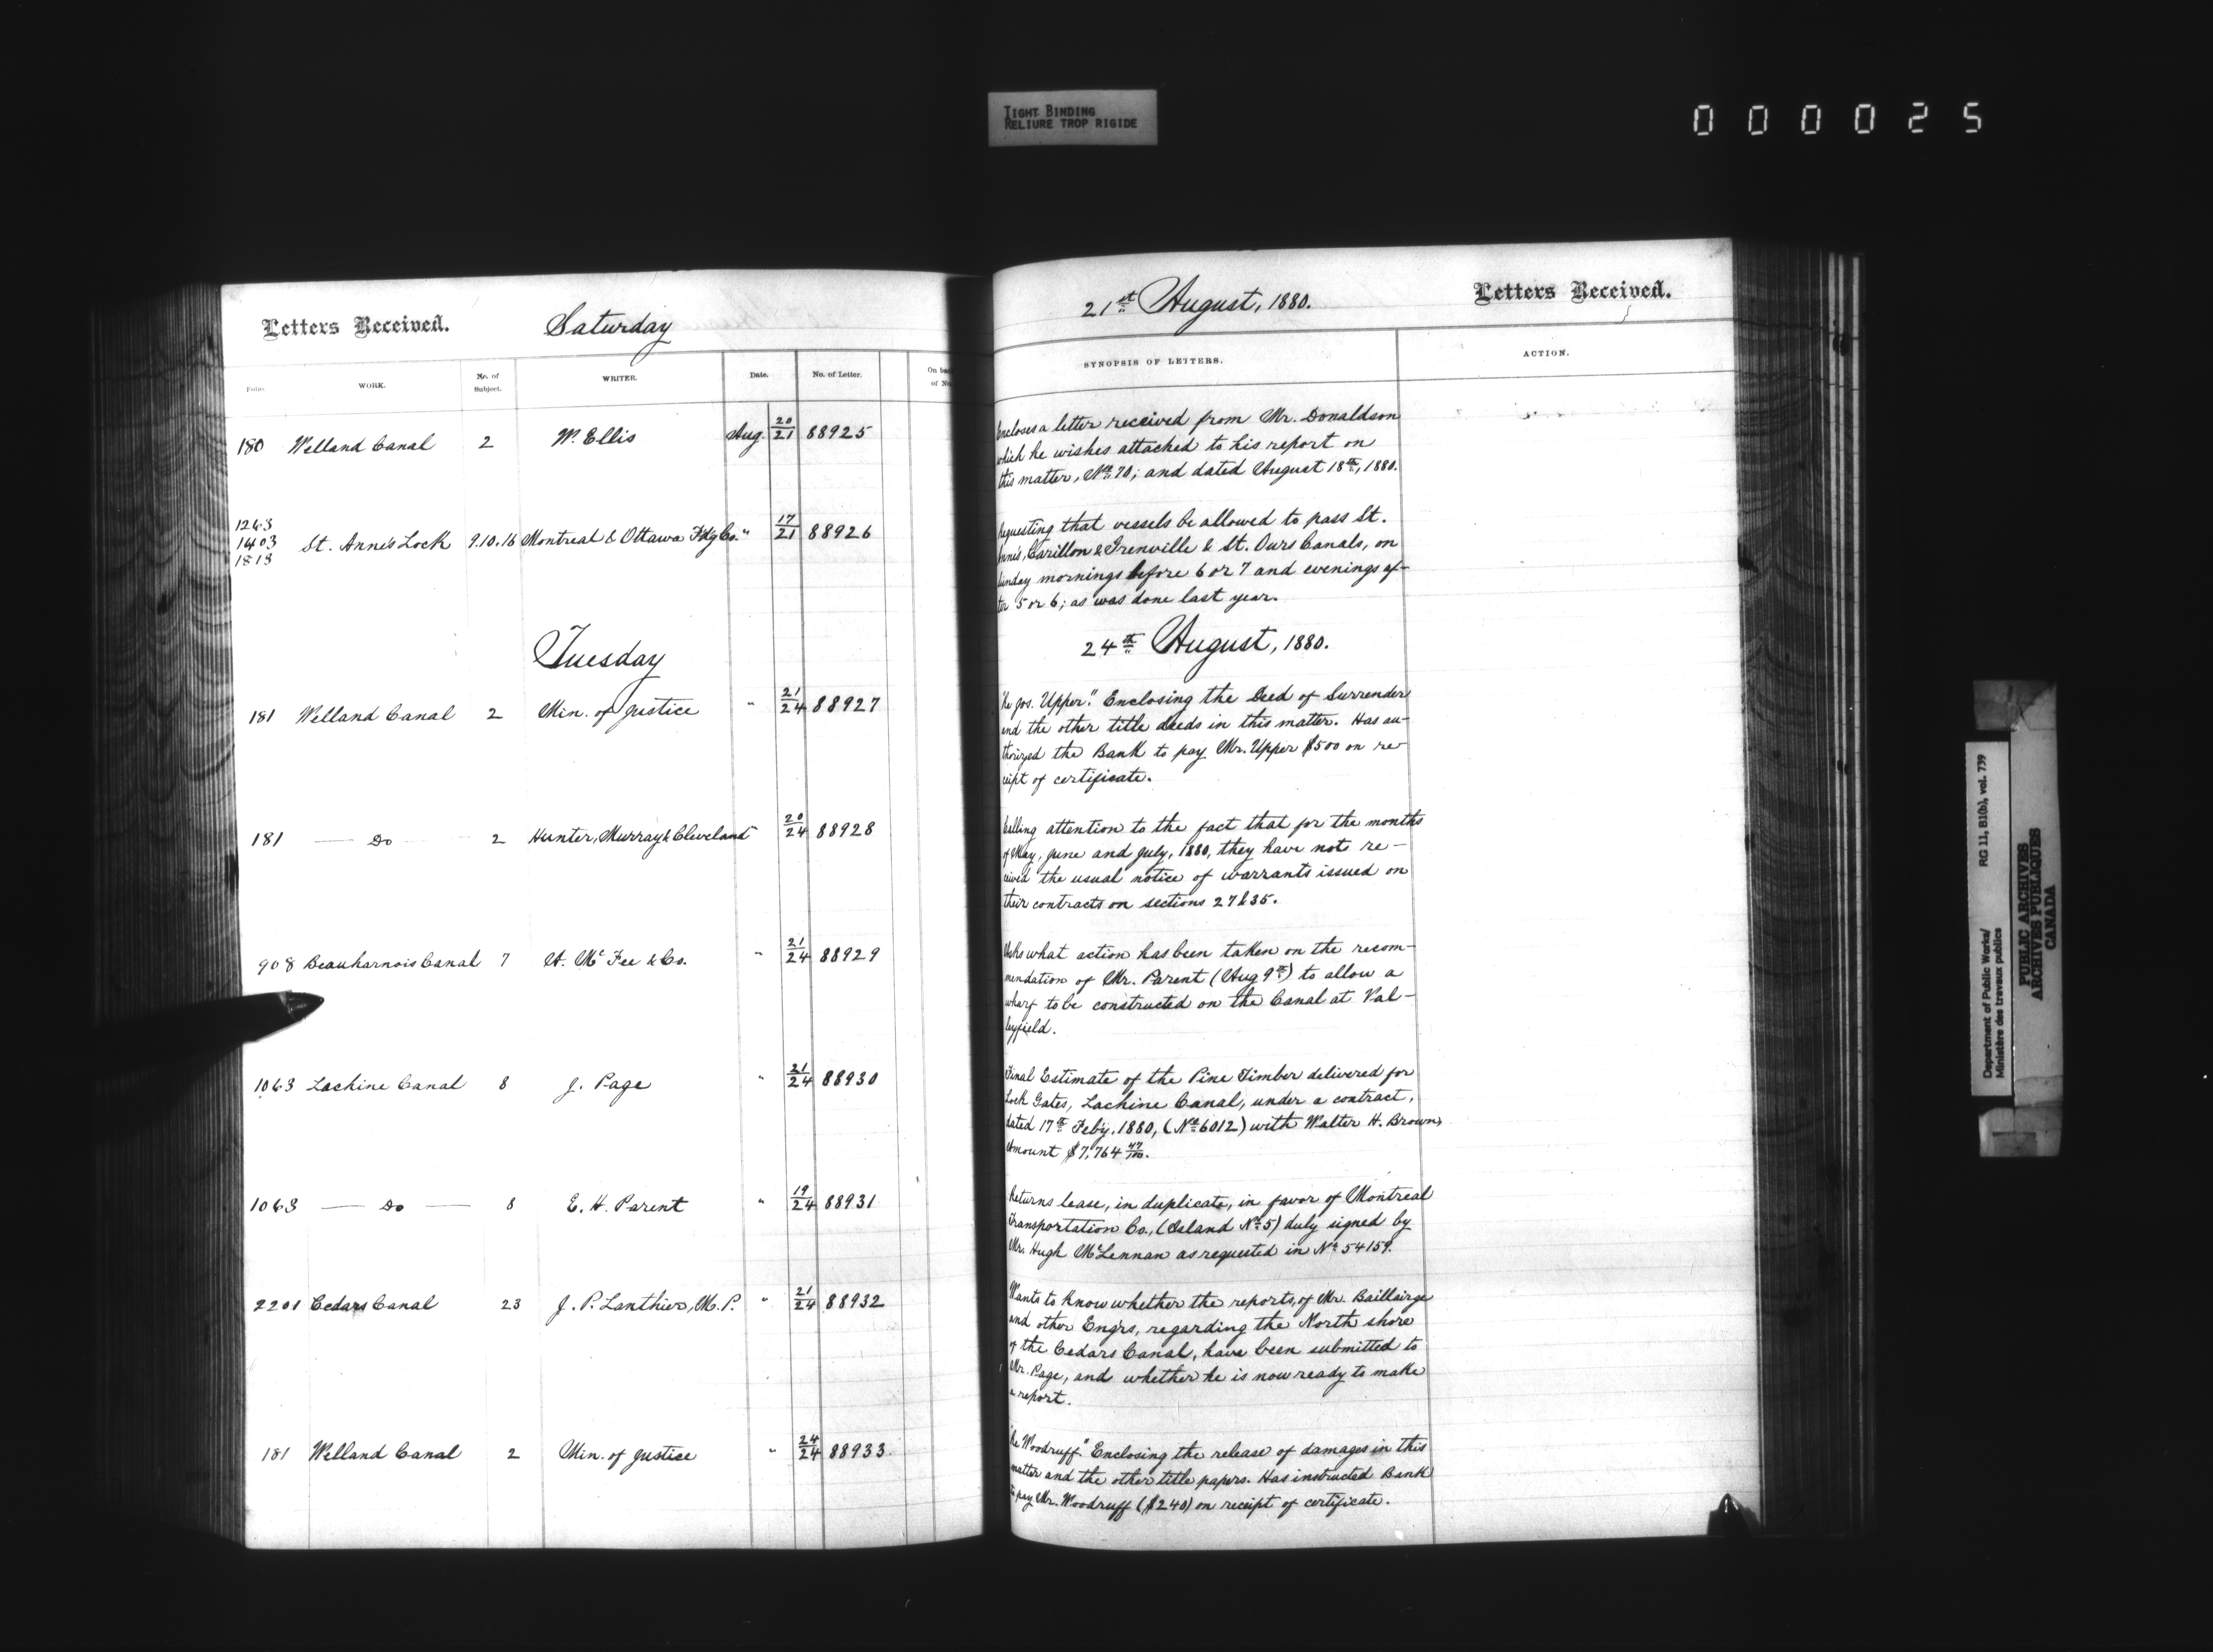 TIGHT BINDING
RELIURE TROP RIGIDE
000025
Letters Received.
Saturday
Folio.
WORK.
No. of
Subject.
WRITER.
Date.
No. of Letter.
180 Welland Canal 2 W. Ellis Aug. 20/21 88925
1263
1403
1813
St. Anne's Lock 9.10.16 Montreal & Ottawa Fdg Co. " 17/21 88926
Tuesday
181 Welland Canal 2 Min. of Justice " 21/24 88927
181 — Do — 2 Hunter, Murray & Cleveland 20/24 88928
908 Beauharnois Canal 7 A. McFee & Co. " 21/24 88929
1063 Lachine Canal 8 J. Page " 21/24 88930
1063 — Do — 8 E. H. Parent " 19/24 88931
2201 Cedars Canal 23 J. P. Lanthier, M.P. " 21/24 88932
181 Welland Canal 2 Min. of Justice " 24/24 88933
21st August, 1880.
Letters Received.
SYNOPSIS OF LETTERS.
ACTION.
Encloses a letter received from Mr. Donaldson
which he wishes attached to his report on
this matter, No. 70; and dated August 18th, 1880.
Requesting that vessels be allowed to pass St.
Anne's, Carillon & Grenville & St. Ours Canals, on
Sunday mornings before 6 or 7 and evenings af-
ter 5 or 6; as was done last year.
24th August, 1880.
"Re Jos. Upper." Enclosing the Deed of Surrender
and the other title deeds in this matter. Has au-
thorized the Bank to pay Mr. Upper $500 on re-
ceipt of certificate.
Calling attention to the fact that for the months
of May, June and July, 1880, they have not re-
ceived the usual notice of warrants issued on
their contracts on sections 27 & 35.
Asks what action has been taken on the recom-
mendation of Mr. Parent (Aug 9th) to allow a
wharf to be constructed on the Canal at Val-
leyfield.
Final Estimate of the Pine Timber delivered for
Lock Gates, Lachine Canal, under a contract,
dated 17th Feby. 1880, (No. 6012) with Walter H. Brown,
Amount $7,764 47/100.
Returns lease, in duplicate, in favor of Montreal
Transportation Co., (Island No. 5) duly signed by
Mr. Hugh McLennan as requested in No. 54159.
Wants to know whether the reports, of Mr. Baillairge
and other Engrs, regarding the North shore
of the Cedars Canal, have been submitted to
Mr. Page, and whether he is now ready to make
a report.
"Re Woodruff." Enclosing the release of damages in this
matter and the other title papers. Has instructed Bank
to pay Mr. Woodruff ($240) on receipt of certificate.
Department of Public Works/ RG 11, B1(b), vol. 739
Ministère des travaux publics
PUBLIC ARCHIVES
ARCHIVES PUBLIQUES
CANADA